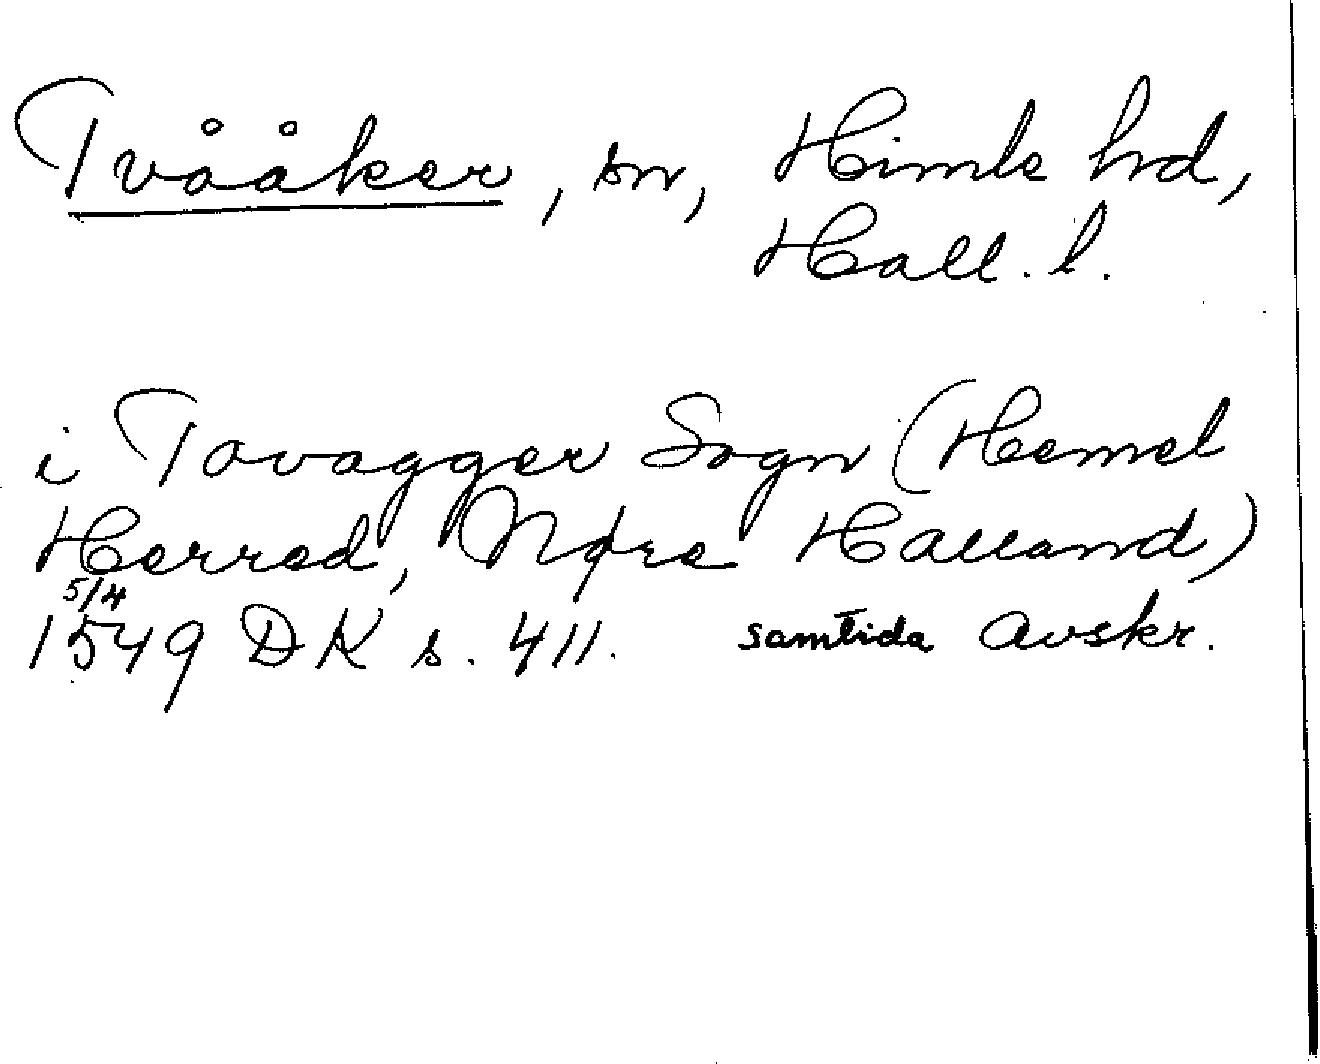 Tvååker, sn, Himle hd,
Hall. l.
i Tovagger Sogn (Hemel
Herred, Nørre Halland)
5/4
1549 DK s. 411. samtida avskr.